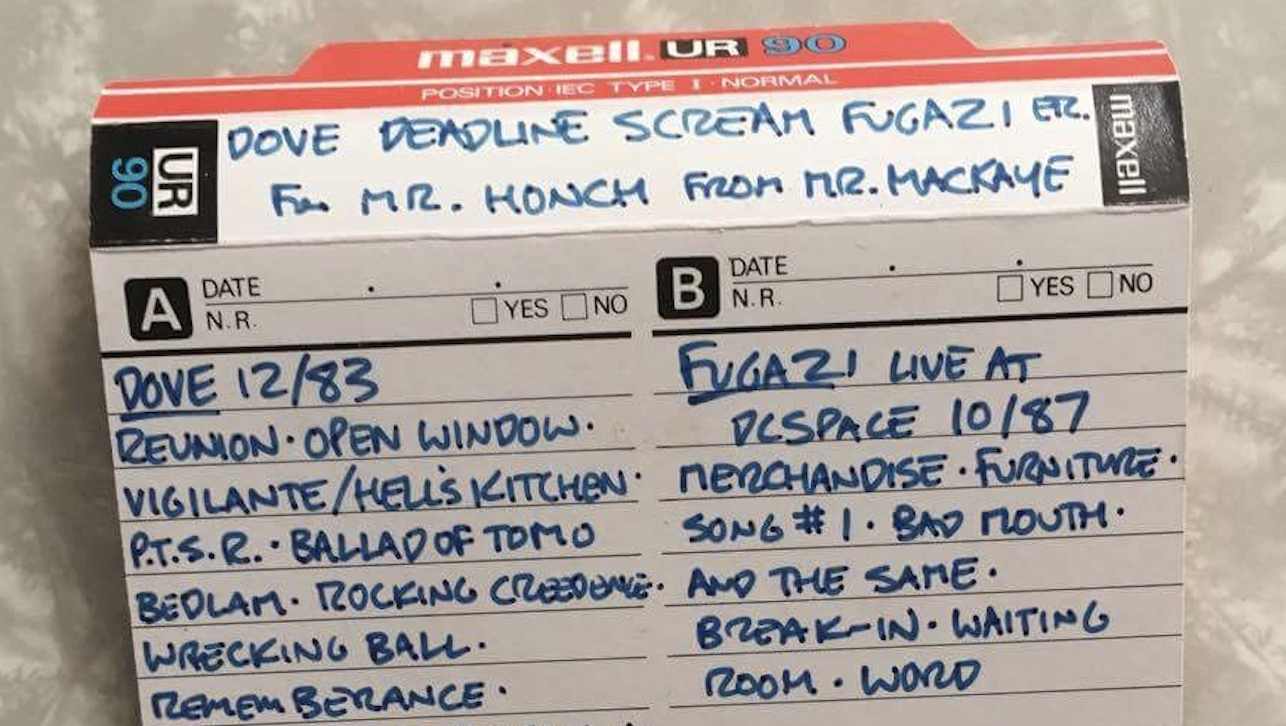 maxell. UR 90
POSITION·IEC TYPE I·NORMAL
UR 90
DOVE DEADLINE SCREAM FUGAZI ETC.
maxell
FOR MR. HONCH FROM MR. MACKAYE
A
DATE . .
N.R. YES NO
DOVE 12/83
REUNION · OPEN WINDOW ·
VIGILANTE/HELL'S KITCHEN ·
P.T.S.R. · BALLAD OF TOMO
BEDLAM · ROCKING CREEDENCE ·
WRECKING BALL ·
REMEMBERANCE ·
B
DATE . .
N.R. YES NO
FUGAZI LIVE AT
DCSPACE 10/87
MERCHANDISE · FURNITURE ·
SONG #1 · BAD MOUTH ·
AND THE SAME ·
BREAK-IN · WAITING
ROOM · WORD